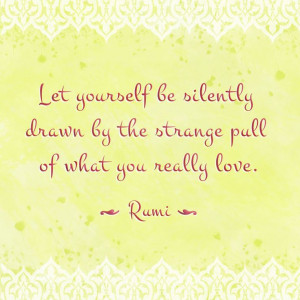 Let yourself be silently
drawn by the strange pull
of what you really love.
Rumi